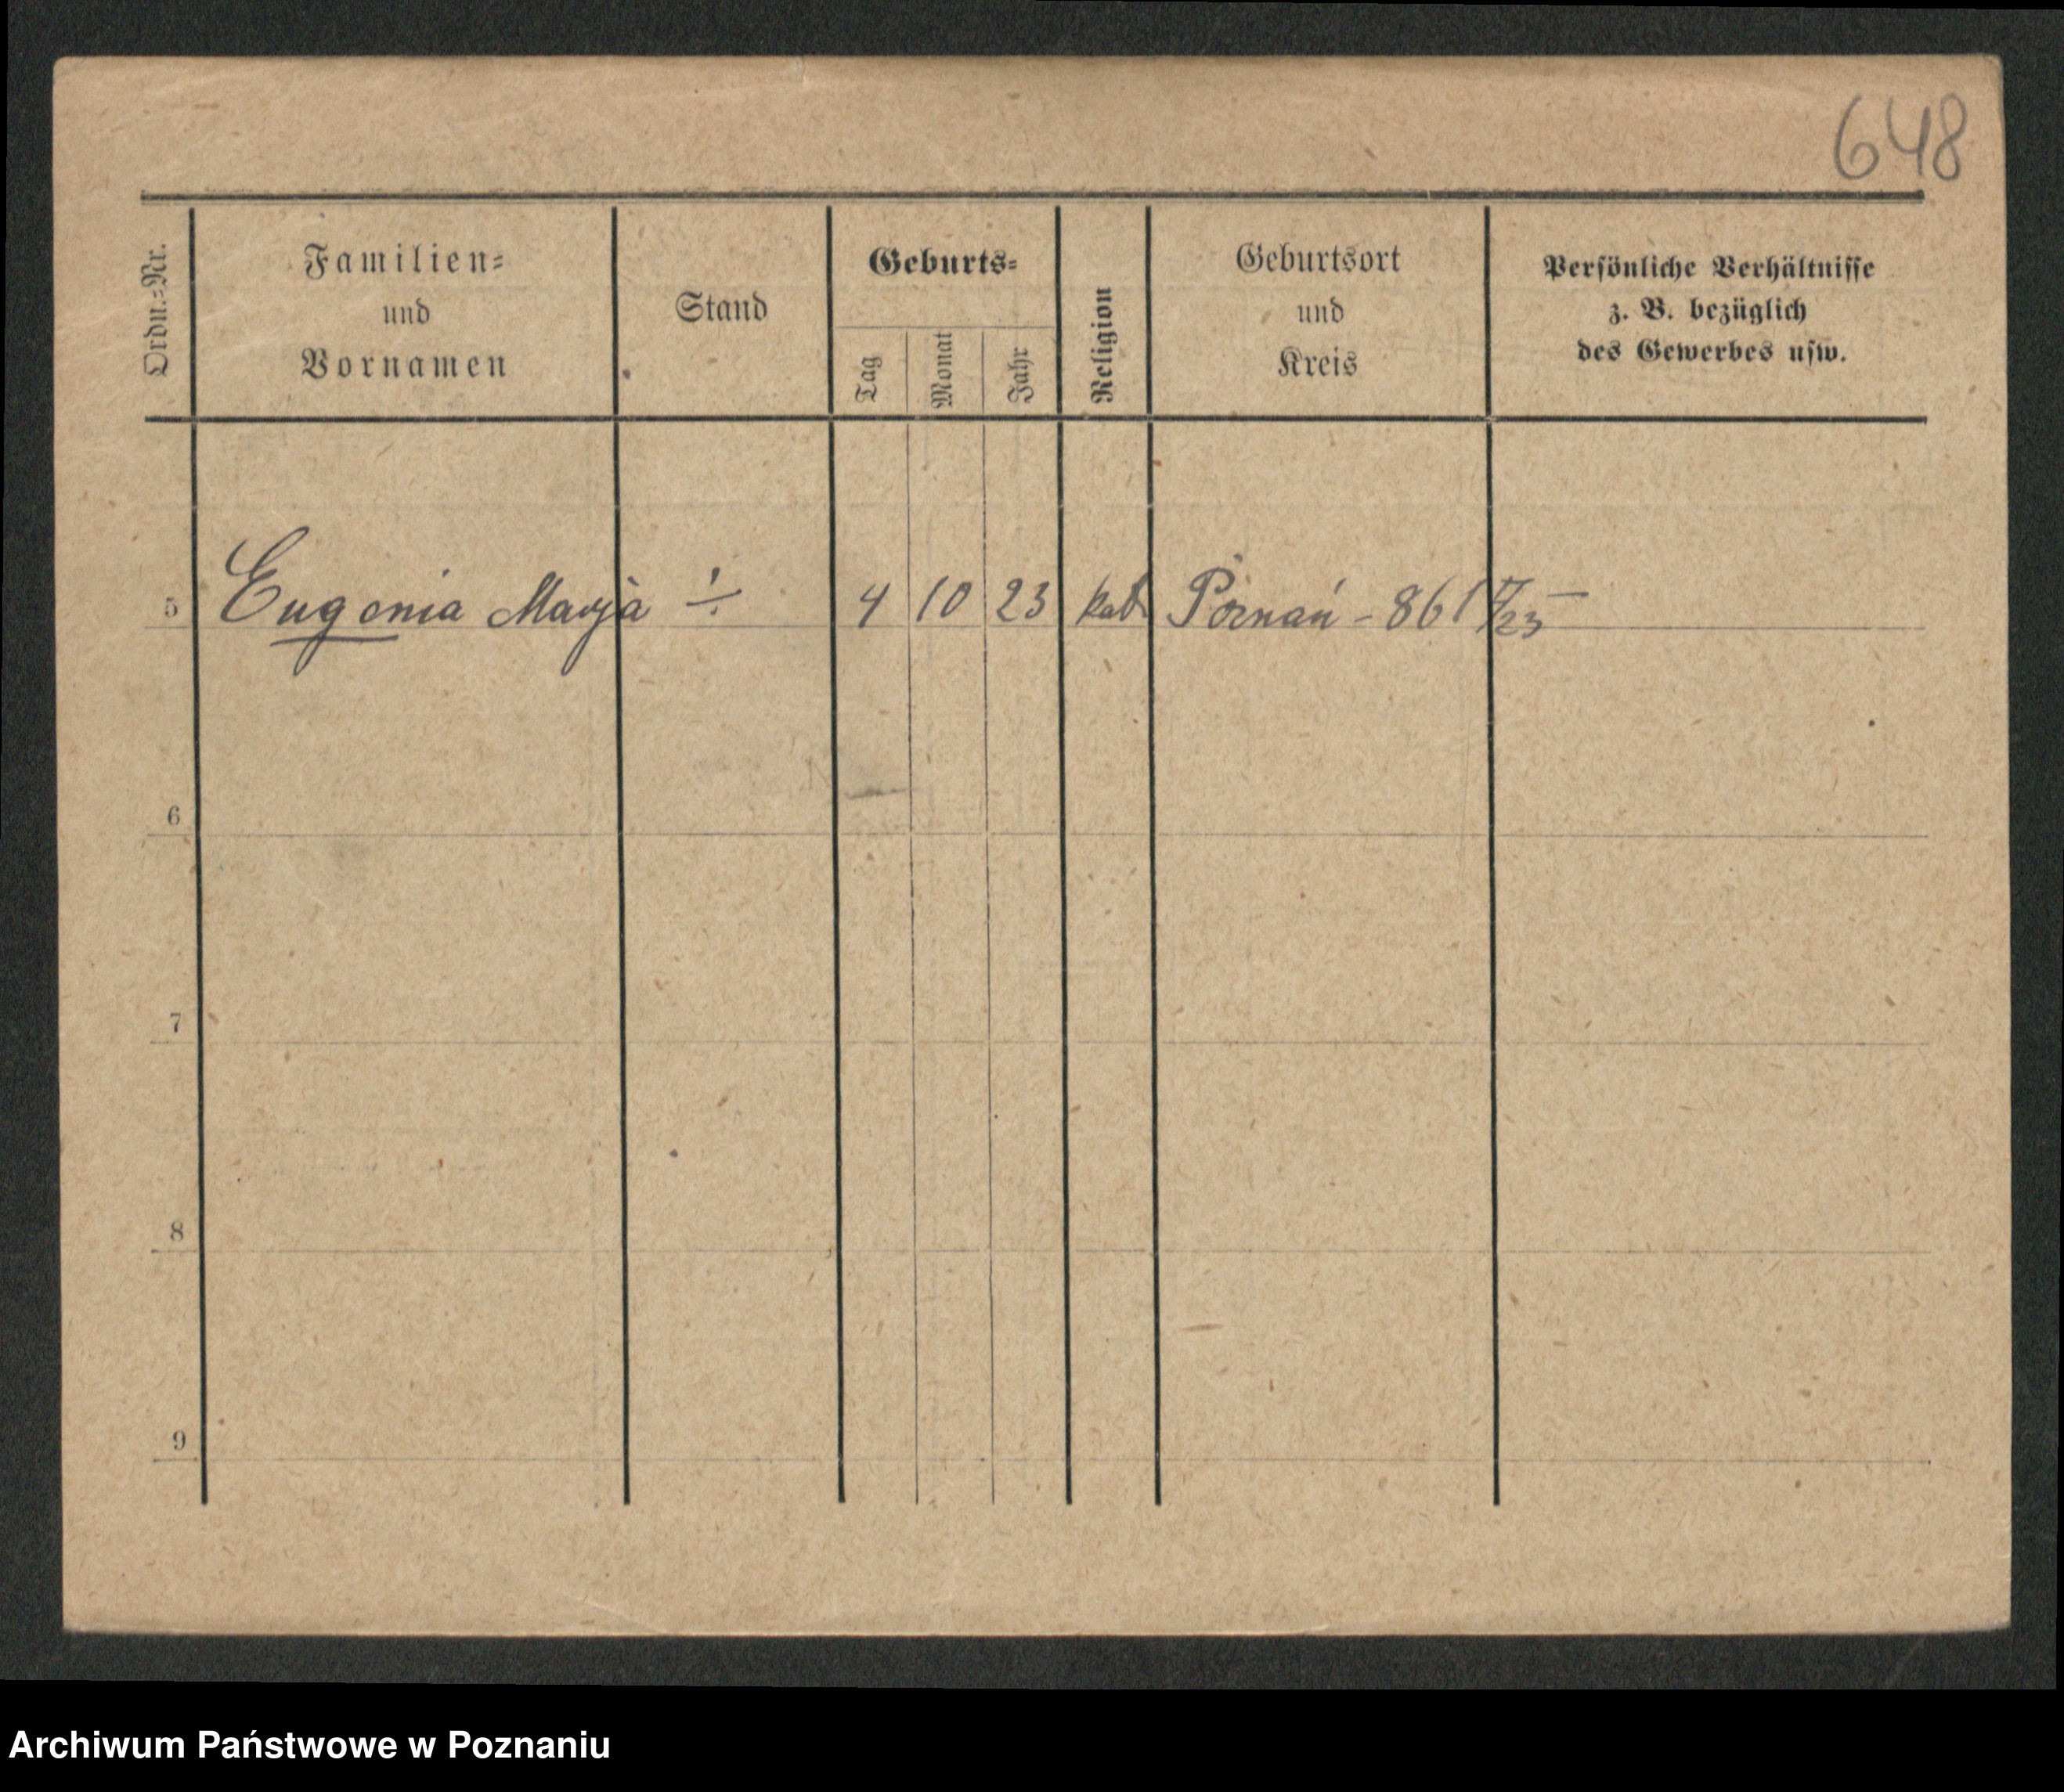 648
Ordn.=Nr.
Familien=
und
Vornamen
Stand
Geburts=
Tag
Monat
Jahr
Religion
Geburtsort
und
Kreis
Persönliche Verhältnisse
z. B. bezüglich
des Gewerbes usw.
5 Eugenia Marja ÷ 4 10 23 kat. Poznań - 861
6
7
8
9
Archiwum Państwowe w Poznaniu